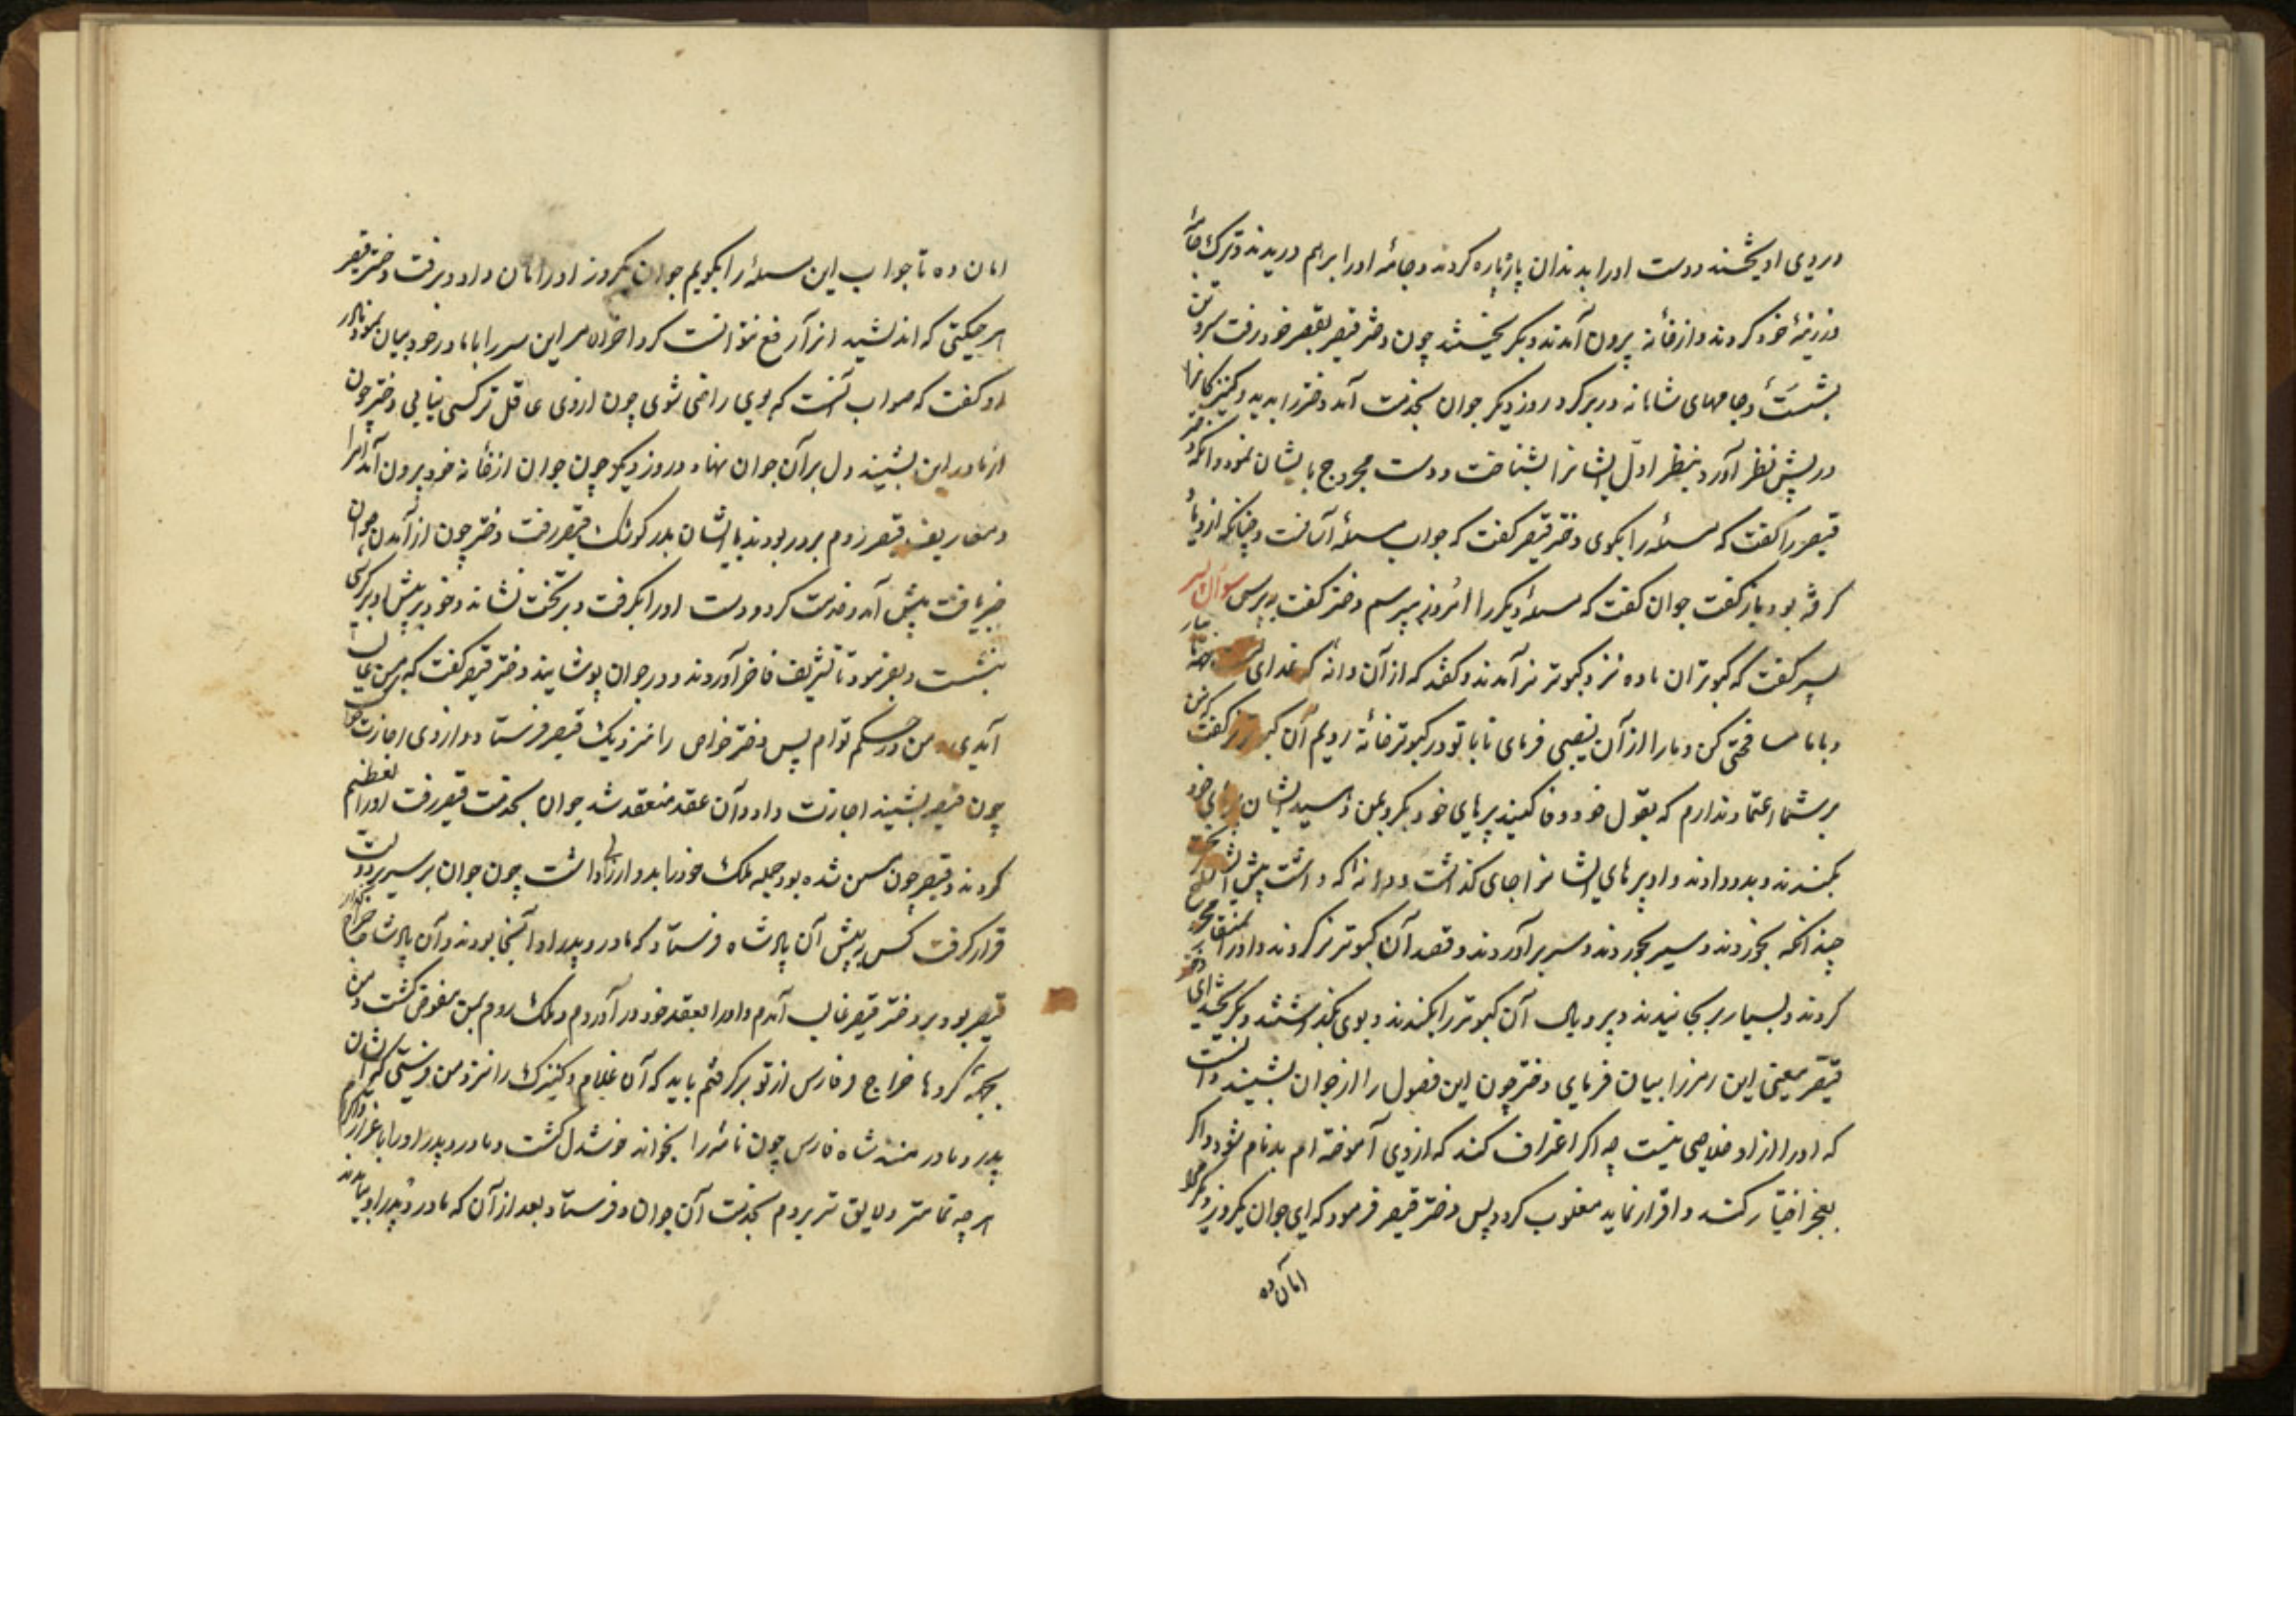 در وی آویختند و دست او را بدندان پاره پاره کردند و جامهٔ او را برهم دریدند و ترک جامهٔ
زرینهٔ خود کردند و از خانه بیرون آمدند و بگریختند چون دختر قیصر بقصر خود رفت سر و تن
بشست و جامهای شاهانه در بر کرد روز دیگر جوان بخدمت آمد دختر را بدید و کنیزکانرا
در پیش نظر آورد بنظر اول ایشانرا بشناخت و دست مجروح بایشان نمود و آنگه دختر
قیصر را گفت که مسئله را بگوی دختر قیصر گفت که جواب مسئله آسانست و چنانکه از وی یاد
گرفته بود باز گفت جوان گفت که مسئلهٔ دیگر را امروز بپرسم دختر گفت بپرس سوال پسر
پسر گفت که کبوتران ماده نزد کبوتر نر آمدند و گفتند که از آن دانه که غذای تست
و با ما مسافحتی کن و ما را از آن نصیبی فرمای تا با تو در کبوترخانه رویم آن کبوتر نر گفت که من
بر شما اعتماد ندارم که بقول خود وفا کنید پرهای خود بگرو بمن دهید ایشان پرهای خود
بکندند و بدو دادند و او پرهای ایشانرا جای گذاشت و دانه که داشت پیش ایشان
چندانکه بخوردند و سیر بخوردند و سر برآوردند و قصد آن کبوتر نر کردند و او را بمنقار مجروح
کردند و بسیار برنجانیدند و پر و بال آن کبوتر را بکندند و بوی بگذاشتند و بگریختند ای دختر
قیصر معنی این رمز را بیان فرمای دختر چون این فصول را از جوان بشنید دانست
که او را از او خلاصی نیست چه اگر اعتراف کند که از وی آموخته ام بدنام شود و اگر
بعجز اختیار کند و اقرار نماید مغلوب گردد پس دختر قیصر فرمود که ای جوان یکروز دیگر مرا
امان ده
امان ده تا جواب این مسئله را بگویم جوان یکروز او را امان داد و برفت دختر قیصر
هر حیلتی که اندیشید از آن رفع نتوانست کرد آخر الامر این سر را با مادر خود بیان نمود مادر
او گفت که صواب آنست که بوی راضی شوی چون از وی عاقل تر کسی نیابی دختر چون
از مادر این بشنید دل بر آن جوان نهاد و روز دیگر چون جوان از خانه خود برون آمد امرا
و معاریف قیصر روم بر در بودند با ایشان بدر کوشک قیصر رفت دختر چون از آمدن جوان
خبر یافت پیش آمد و خدمت کرد و دست او را بگرفت و بر تخت نشاند و خود در پیش او بر کرسی
بنشست و بفرمود تا تشریف فاخر آوردند و در جوان پوشانیدند دختر قیصر گفت که بر من غالب
آمدی و من در حکم توام پس دختر خواص را نزدیک قیصر فرستاد و از وی اجازت خواست
چون قیصر بشنید اجازت داد و آن عقد منعقد شد جوان بخدمت قیصر رفت او را تعظیم
کردند و قیصر چون مسن شده بود جمله ملک خود را بدو ارزانی داشت چون جوان بر سریر دولت
قرار گرفت کس پیش آن پادشاه فرستاد که مادر و پدر او آنجا بودند و آن پادشاه خراج گزار
قیصر بود بر دختر قیصر غالب آمدم و او را بعقد خود در آوردم و ملک روم بمن مفوض گشت و من
خراج فارس از تو برگرفتم باید که آن غلام و کنیزک را نزد من فرستی که ایشان
پدر و مادر منند شاه فارس چون نامه را بخواند خوشدل گشت و مادر و پدر او را باعزاز و اکرام
هر چه تمامتر و لایق تر بردم بخدمت آن جوان فرستاد بعد از آن که مادر و پدر او بیامدند